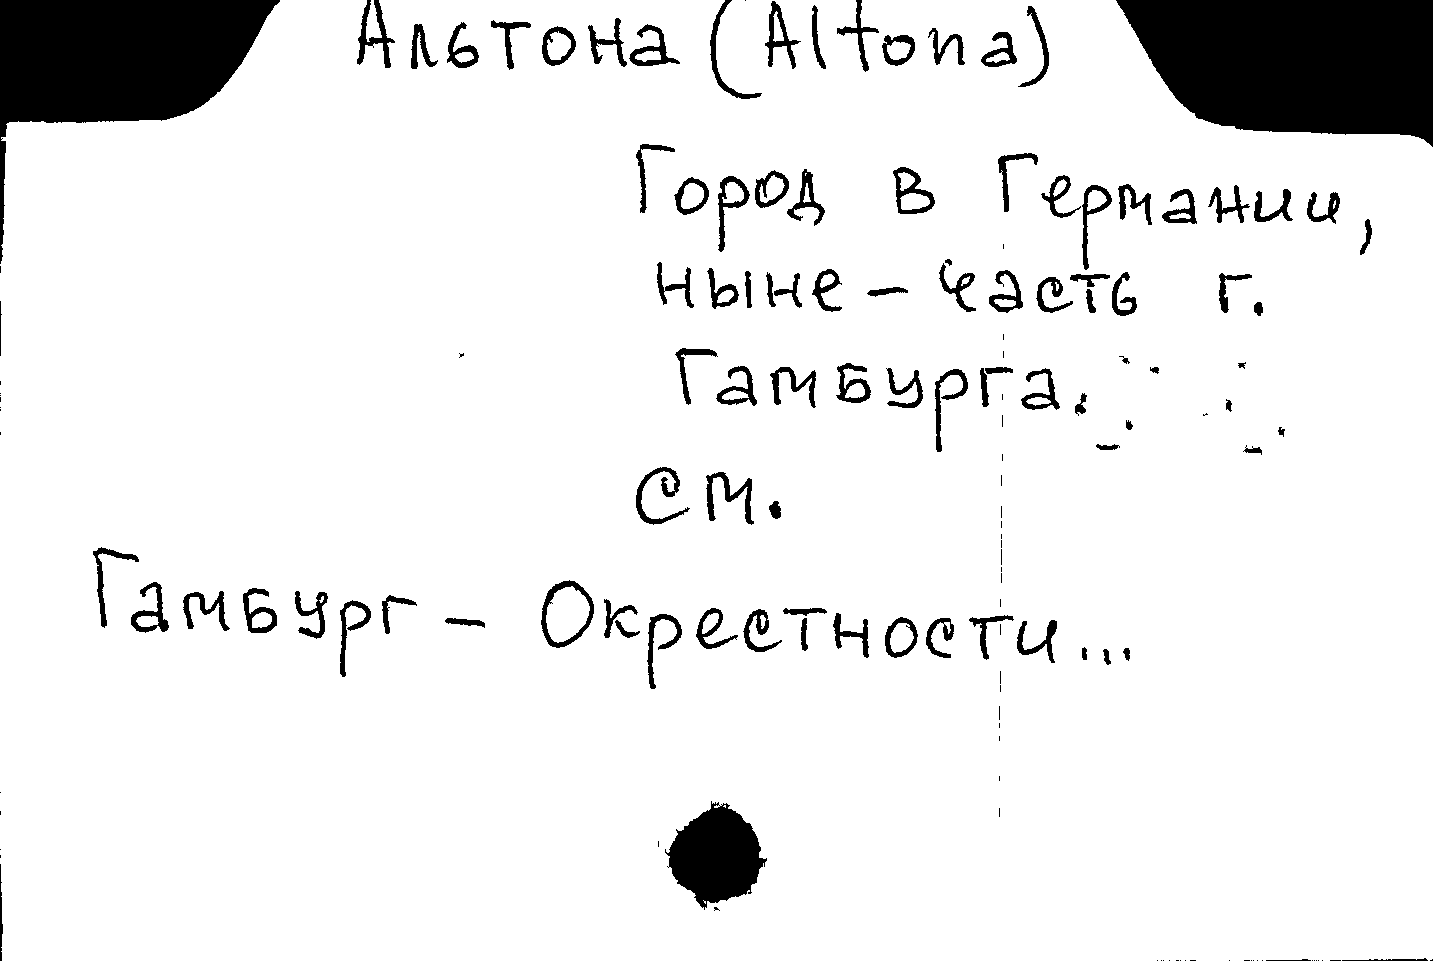 Альтона (Altona)
Город в Германии,
ныне – часть г.
Гамбурга.
см.
Гамбург – Окрестности...